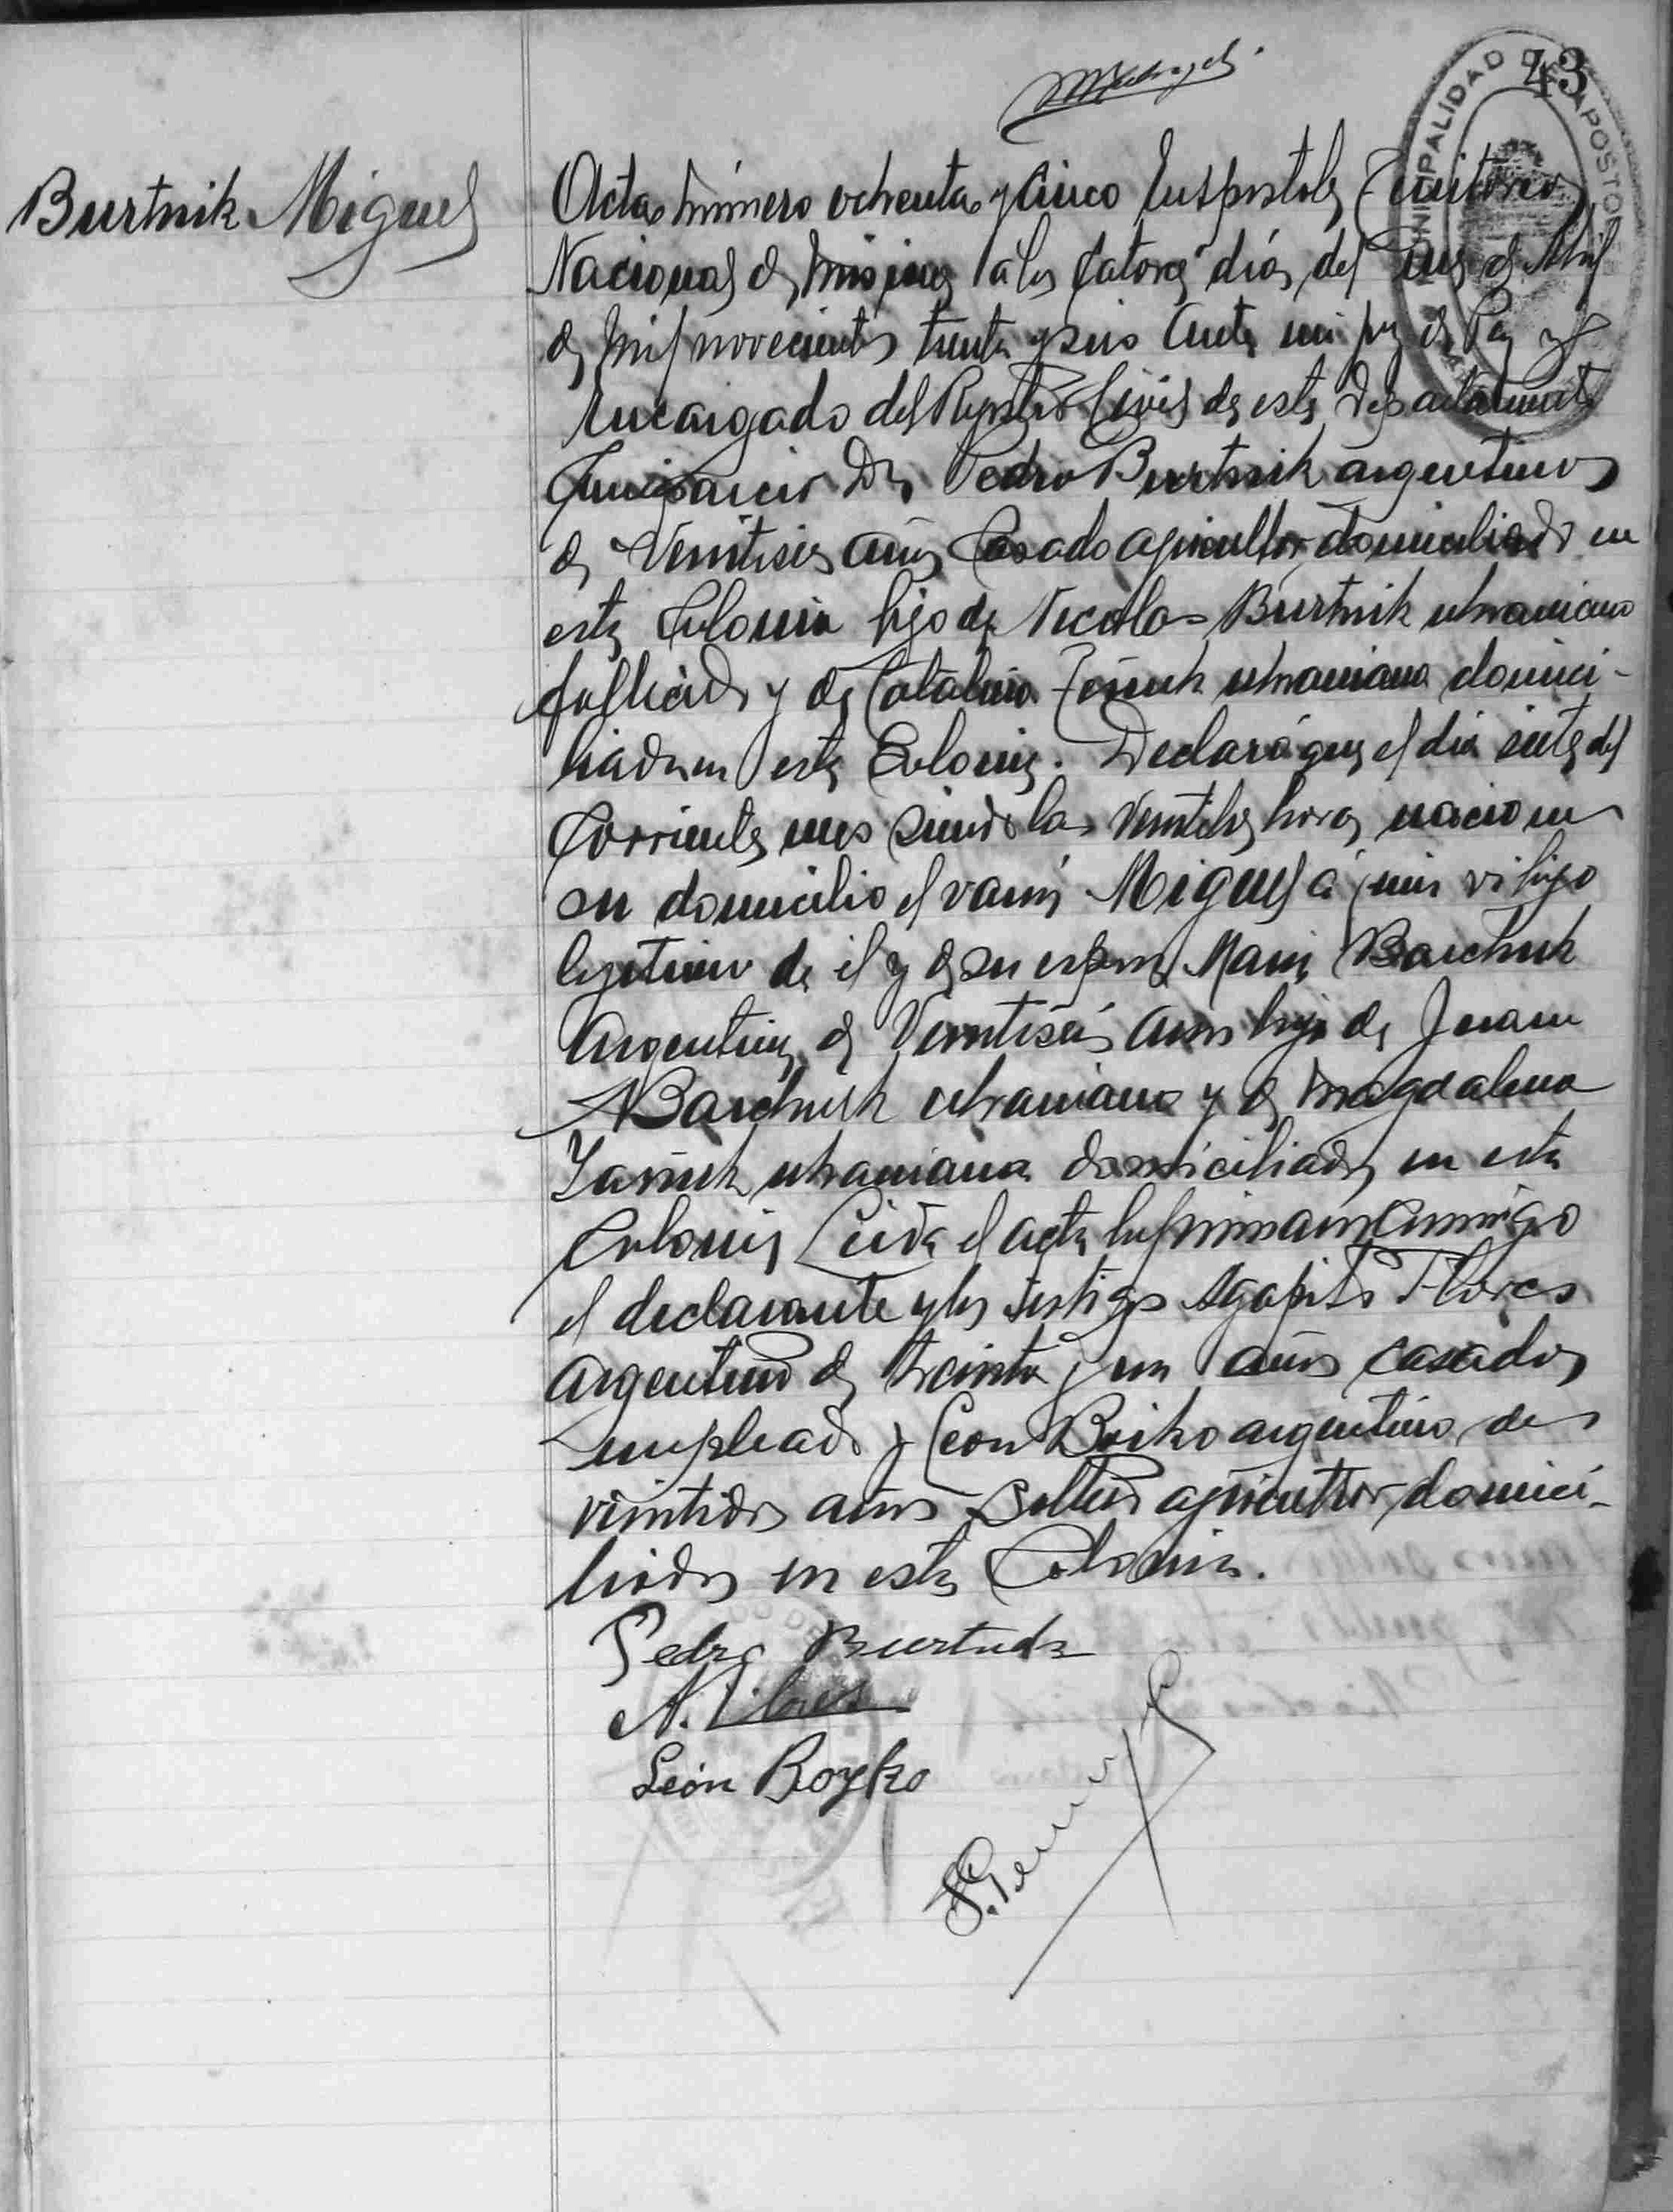 43
MUNICIPALIDAD DE APOSTOLES
Burtnik Miguel
Acta número ochenta y cinco En Apostoles Territorio
Nacional de Misiones a los catorce días del mes de Abril
de mil novecientos treinta y seis Ante mi Juez de Paz y
Encargado del Registro Civil de este Departamento
Compareció Dn Pedro Burtnik argentino
de Veintiseis años Casado agricultor domiciliado en
esta Colonia hijo de Nicolas Burtnik ukraniano
fallecido y de Catalina ukraniana domici-
liada en esta Colonia. Declaró que el dia siete del
Corriente mes siendo las horas nacio en
su domicilio el varón Miguel á quien vi hijo
legitimo de él y de su esposa Maria Barchuk
Argentina de Veintiseis años hija de Juan
Barchuk ukraniano y de Magdalena
ukraniana domiciliados en esta
Colonia Leida el acta la firman conmigo
el declarante y los testigos Agapito Flores
argentino de treinta y un años casado
empleado y Leon Boiko argentino de
veintidos años Soltero agricultor domici-
liados en esta Colonia.
Pedro Burtnik
A. Flores
León Boyko